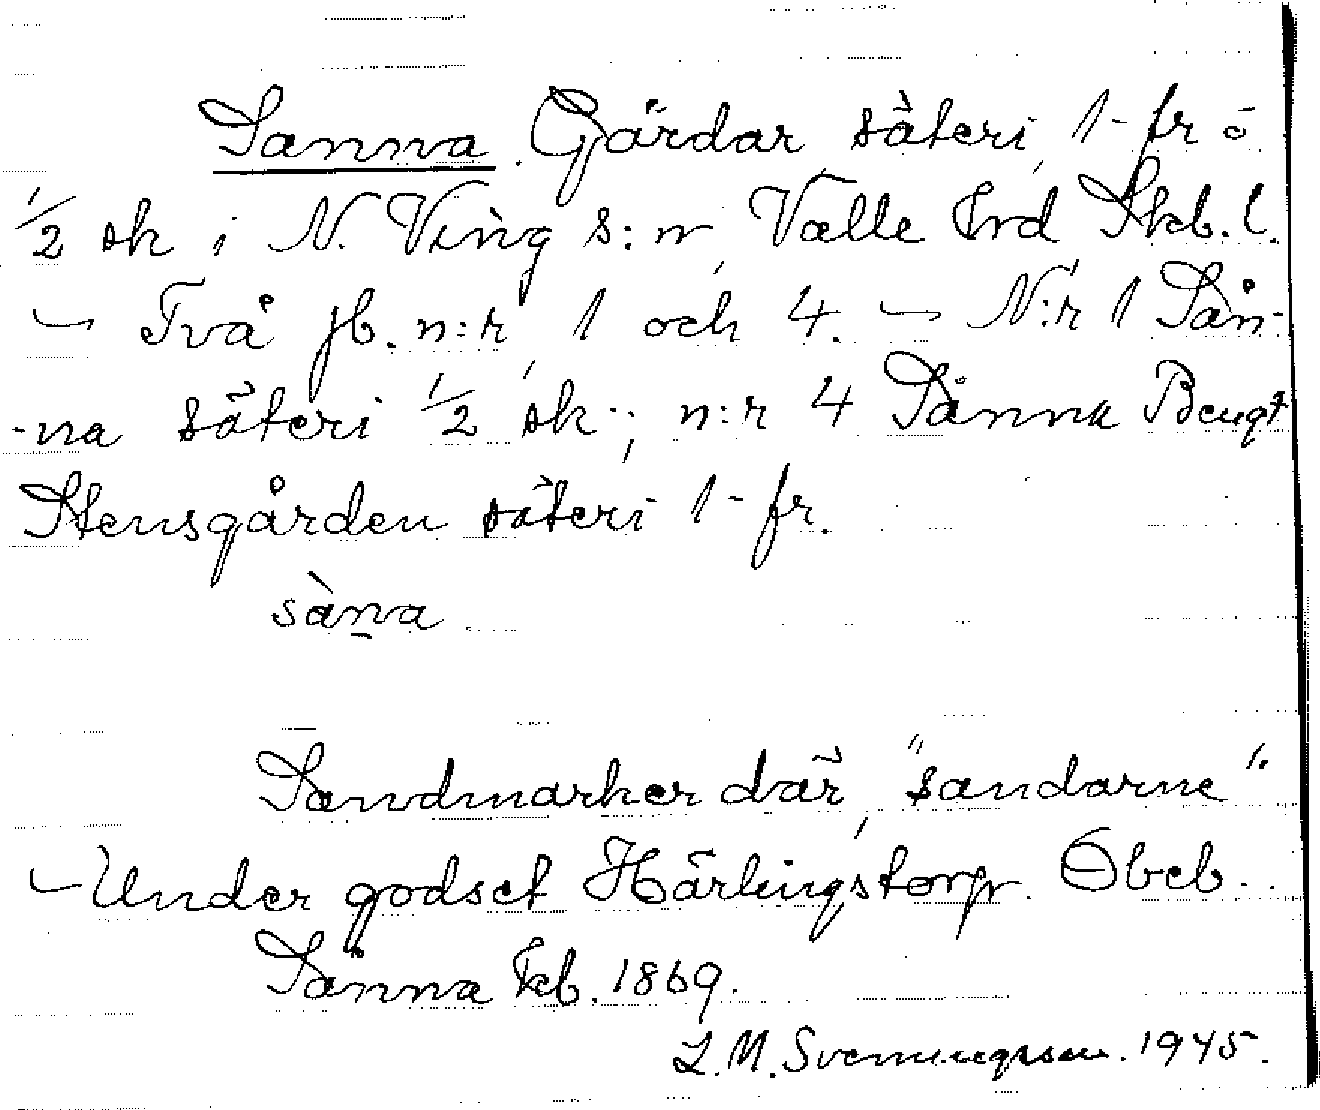 Sanna. Gårdar säteri, 1 fr o
1/2 sk i N. Ving s:n, Valle hrd, Skb. l.
— Två jb. n:r, 1 och 4. — N:r 1 Sån-
-na säteri 1/2 sk.; n:r 4 Sånna Bengt
Stensgården säteri 1 fr.
sàn̠a
Sandmarker där, "sandarne".
— Under godset Härlingstorp. Obeb.
Sånna kb. 1869.
L. M. Svenungsson. 1945.